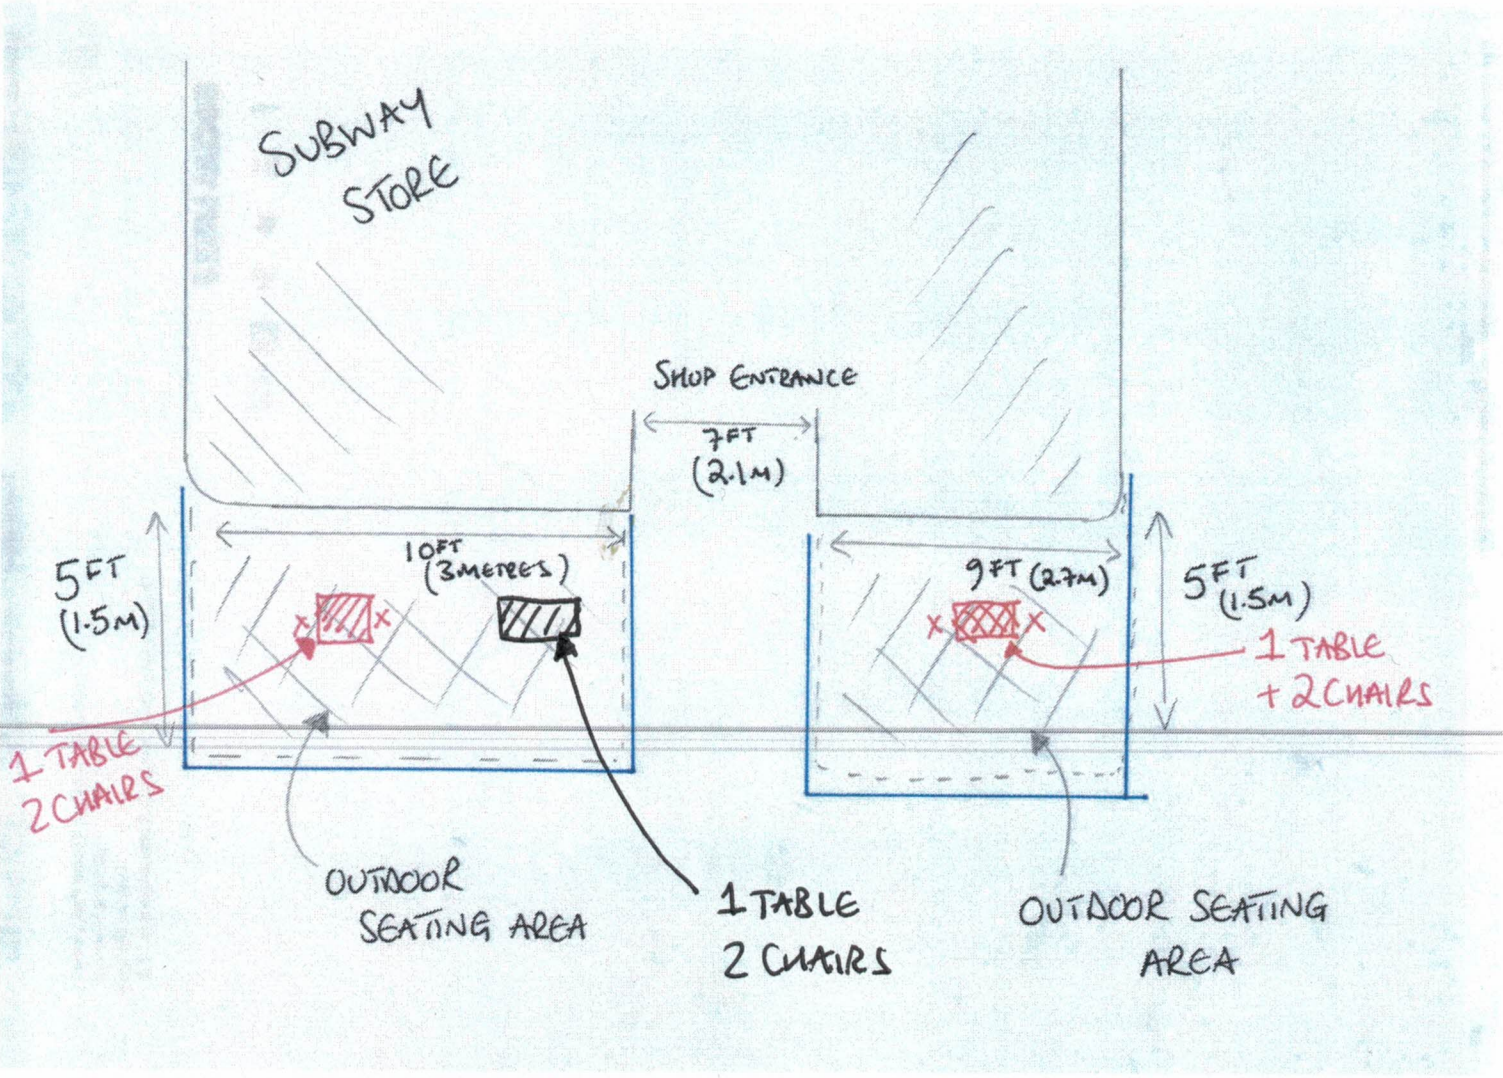 SUBWAY
STORE
SHOP ENTRANCE
7FT
(2.1M)
5FT
(1.5M)
10FT
(3 METRES)
9FT (2.7M)
5FT
(1.5M)
1 TABLE
+ 2 CHAIRS
1 TABLE
2 CHAIRS
OUTDOOR
SEATING AREA
1 TABLE
2 CHAIRS
OUTDOOR SEATING
AREA